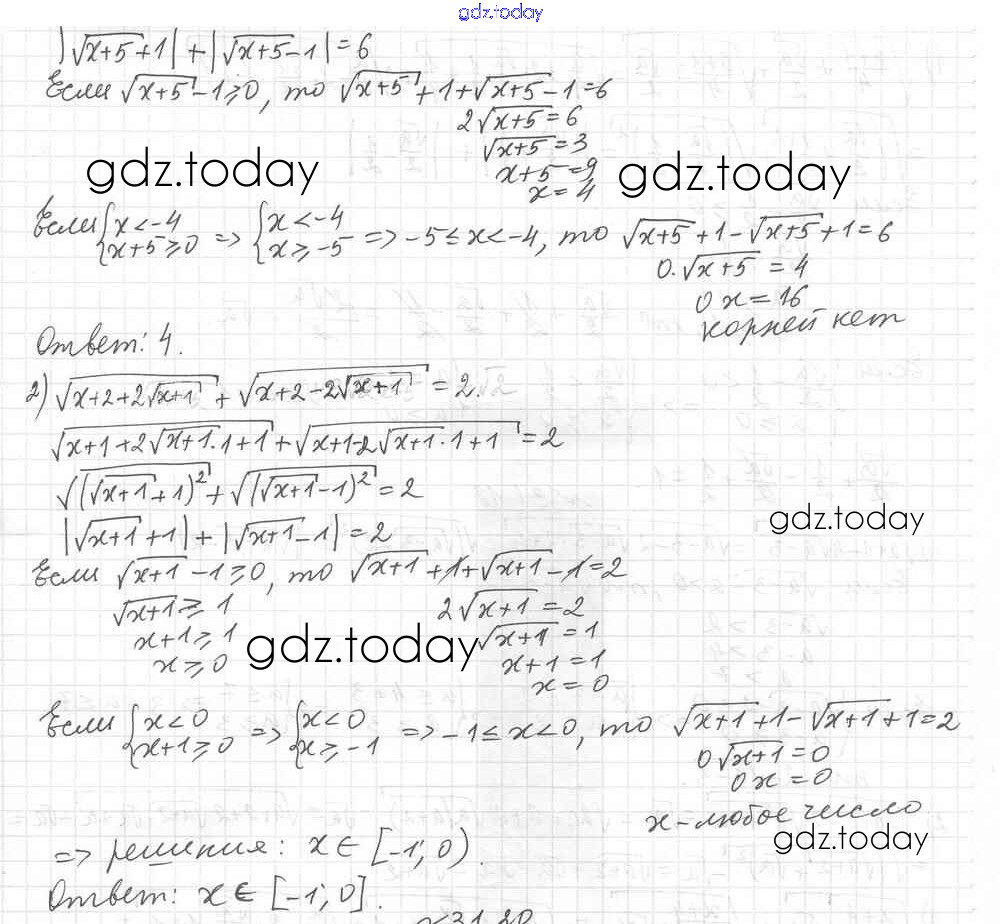 gdz.today
|√(x+5)+1| + |√(x+5)-1| = 6
Если √(x+5)-1≥0, то √(x+5)+1+√(x+5)-1=6
2√(x+5)=6
√(x+5)=3
x+5=9
x=4
gdz.today gdz.today
Если {x<-4 x+5≥0 => {x<-4 x≥-5 => -5≤x<-4, то √(x+5)+1-√(x+5)+1=6
0·√(x+5) = 4
0x=16
корней нет
Ответ: 4.
2) √(x+2+2√(x+1)) + √(x+2-2√(x+1)) = 2.
√(x+1+2√(x+1)·1+1) + √(x+1-2√(x+1)·1+1) = 2
√((√(x+1)+1)²) + √((√(x+1)-1)²) = 2
gdz.today
|√(x+1)+1| + |√(x+1)-1| = 2
Если √(x+1)-1≥0, то √(x+1)+1+√(x+1)-1=2
√(x+1)≥1 2√(x+1)=2
x+1≥1 √(x+1)=1
gdz.today
x≥0 x+1=1
x=0
Если {x<0 x+1≥0 => {x<0 x≥-1 => -1≤x<0, то √(x+1)+1-√(x+1)+1=2
0√(x+1)=0
0x=0
x-любое число
gdz.today
=> решения: x∈[-1; 0).
Ответ: x∈[-1; 0].